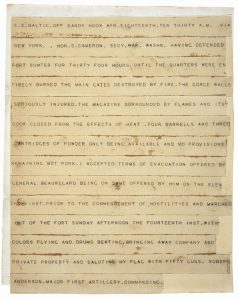 S.S.BALTIC.OFF SANDY HOOK APR.EIGHTEENTH.TEN THIRTY A.M. .VIA
NEW YORK. . HON.S.CAMERON. SECY.WAR. WASHN. HAVING DEFENDED
FORT SUMTER FOR THIRTY FOUR HOURS. UNTIL THE QUARTERS WERE EN
TIRELY BURNED THE MAIN GATES DESTROYED BY FIRE. THE GORGE WALLS
SERIOUSLY INJURED. THE MAGAZINE SURROUNDED BY FLAMES AND ITS
DOOR CLOSED FROM THE EFFECTS OF HEAT. FOUR BARRELLS AND THREE
CARTRIDGES OF POWDER ONLY BEING AVAILABLE AND NO PROVISIONS
REMAINING BUT PORK. I ACCEPTED TERMS OF EVACUATION OFFERED BY
GENERAL BEAUREGARD BEING ON SAME OFFERED BY HIM ON THE ELEV
ENTH INST.PRIOR TO THE COMMENCEMENT OF HOSTILITIES AND MARCHED
OUT OF THE FORT SUNDAY AFTERNOON THE FOURTEENTH INST.WITH
COLORS FLYING AND DRUMS BEATING.BRINGING AWAY COMPANY AND
PRIVATE PROPERTY AND SALUTING MY FLAG WITH FIFTY GUNS. ROBERT
ANDERSON.MAJOR FIRST ARTILLERY.COMMANDING.